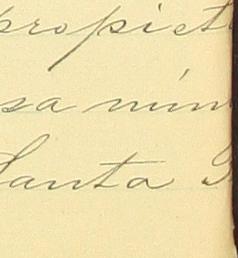 propiet
sa mín
Santa